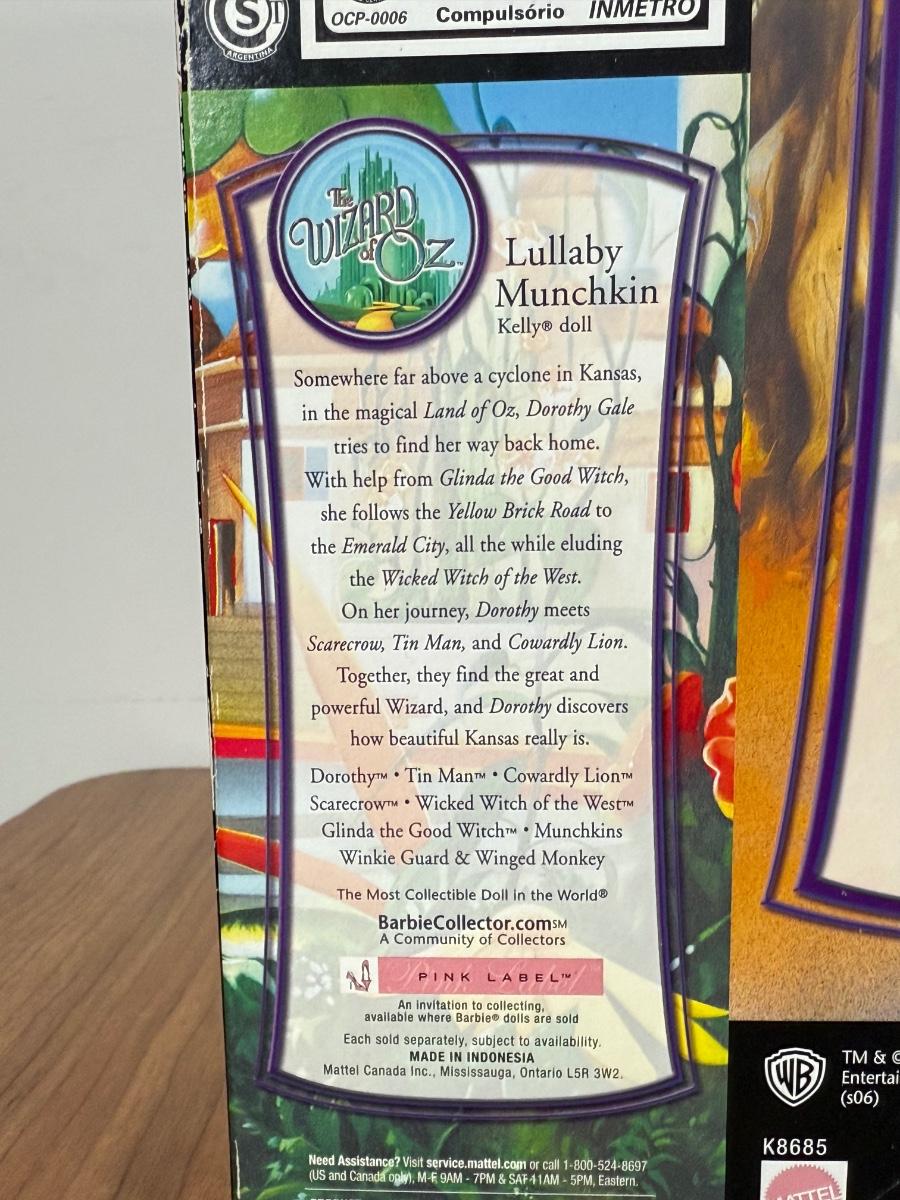 ST
ARGENTINA
OCP-0006
Compulsório
INMETRO
The
WIZARD
of OZ™
Lullaby
Munchkin
Kelly® doll
Somewhere far above a cyclone in Kansas,
in the magical Land of Oz, Dorothy Gale
tries to find her way back home.
With help from Glinda the Good Witch,
she follows the Yellow Brick Road to
the Emerald City, all the while eluding
the Wicked Witch of the West.
On her journey, Dorothy meets
Scarecrow, Tin Man, and Cowardly Lion.
Together, they find the great and
powerful Wizard, and Dorothy discovers
how beautiful Kansas really is.
Dorothy™ • Tin Man™ • Cowardly Lion™
Scarecrow™ • Wicked Witch of the West™
Glinda the Good Witch™ • Munchkins
Winkie Guard & Winged Monkey
The Most Collectible Doll in the World®
BarbieCollector.com℠
A Community of Collectors
PINK LABEL™
An invitation to collecting,
available where Barbie® dolls are sold
Each sold separately, subject to availability.
MADE IN INDONESIA
Mattel Canada Inc., Mississauga, Ontario L5R 3W2.
Need Assistance? Visit service.mattel.com or call 1-800-524-8697
(US and Canada only), M-F 9AM - 7PM & SAT 11AM - 5PM, Eastern.
WB
TM & ©
Entertai
(s06)
K8685
MATTEL